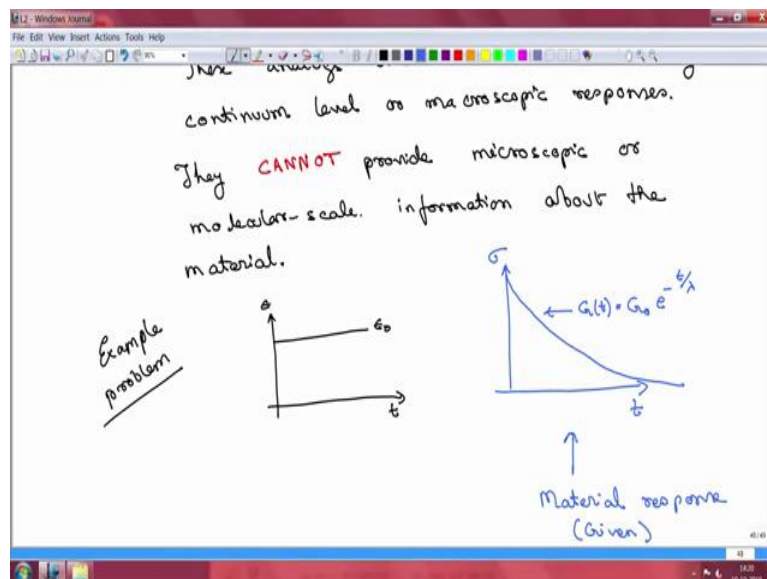 L2 - Windows Journal
File Edit View Insert Actions Tools Help
continuum level or macroscopic responses.
They CANNOT provide microscopic or
molecular-scale. information about the
material.
Example
problem
ε₀
t
σ
G(t) = G₀ e^{-t/λ}
t
Material response
(Given)